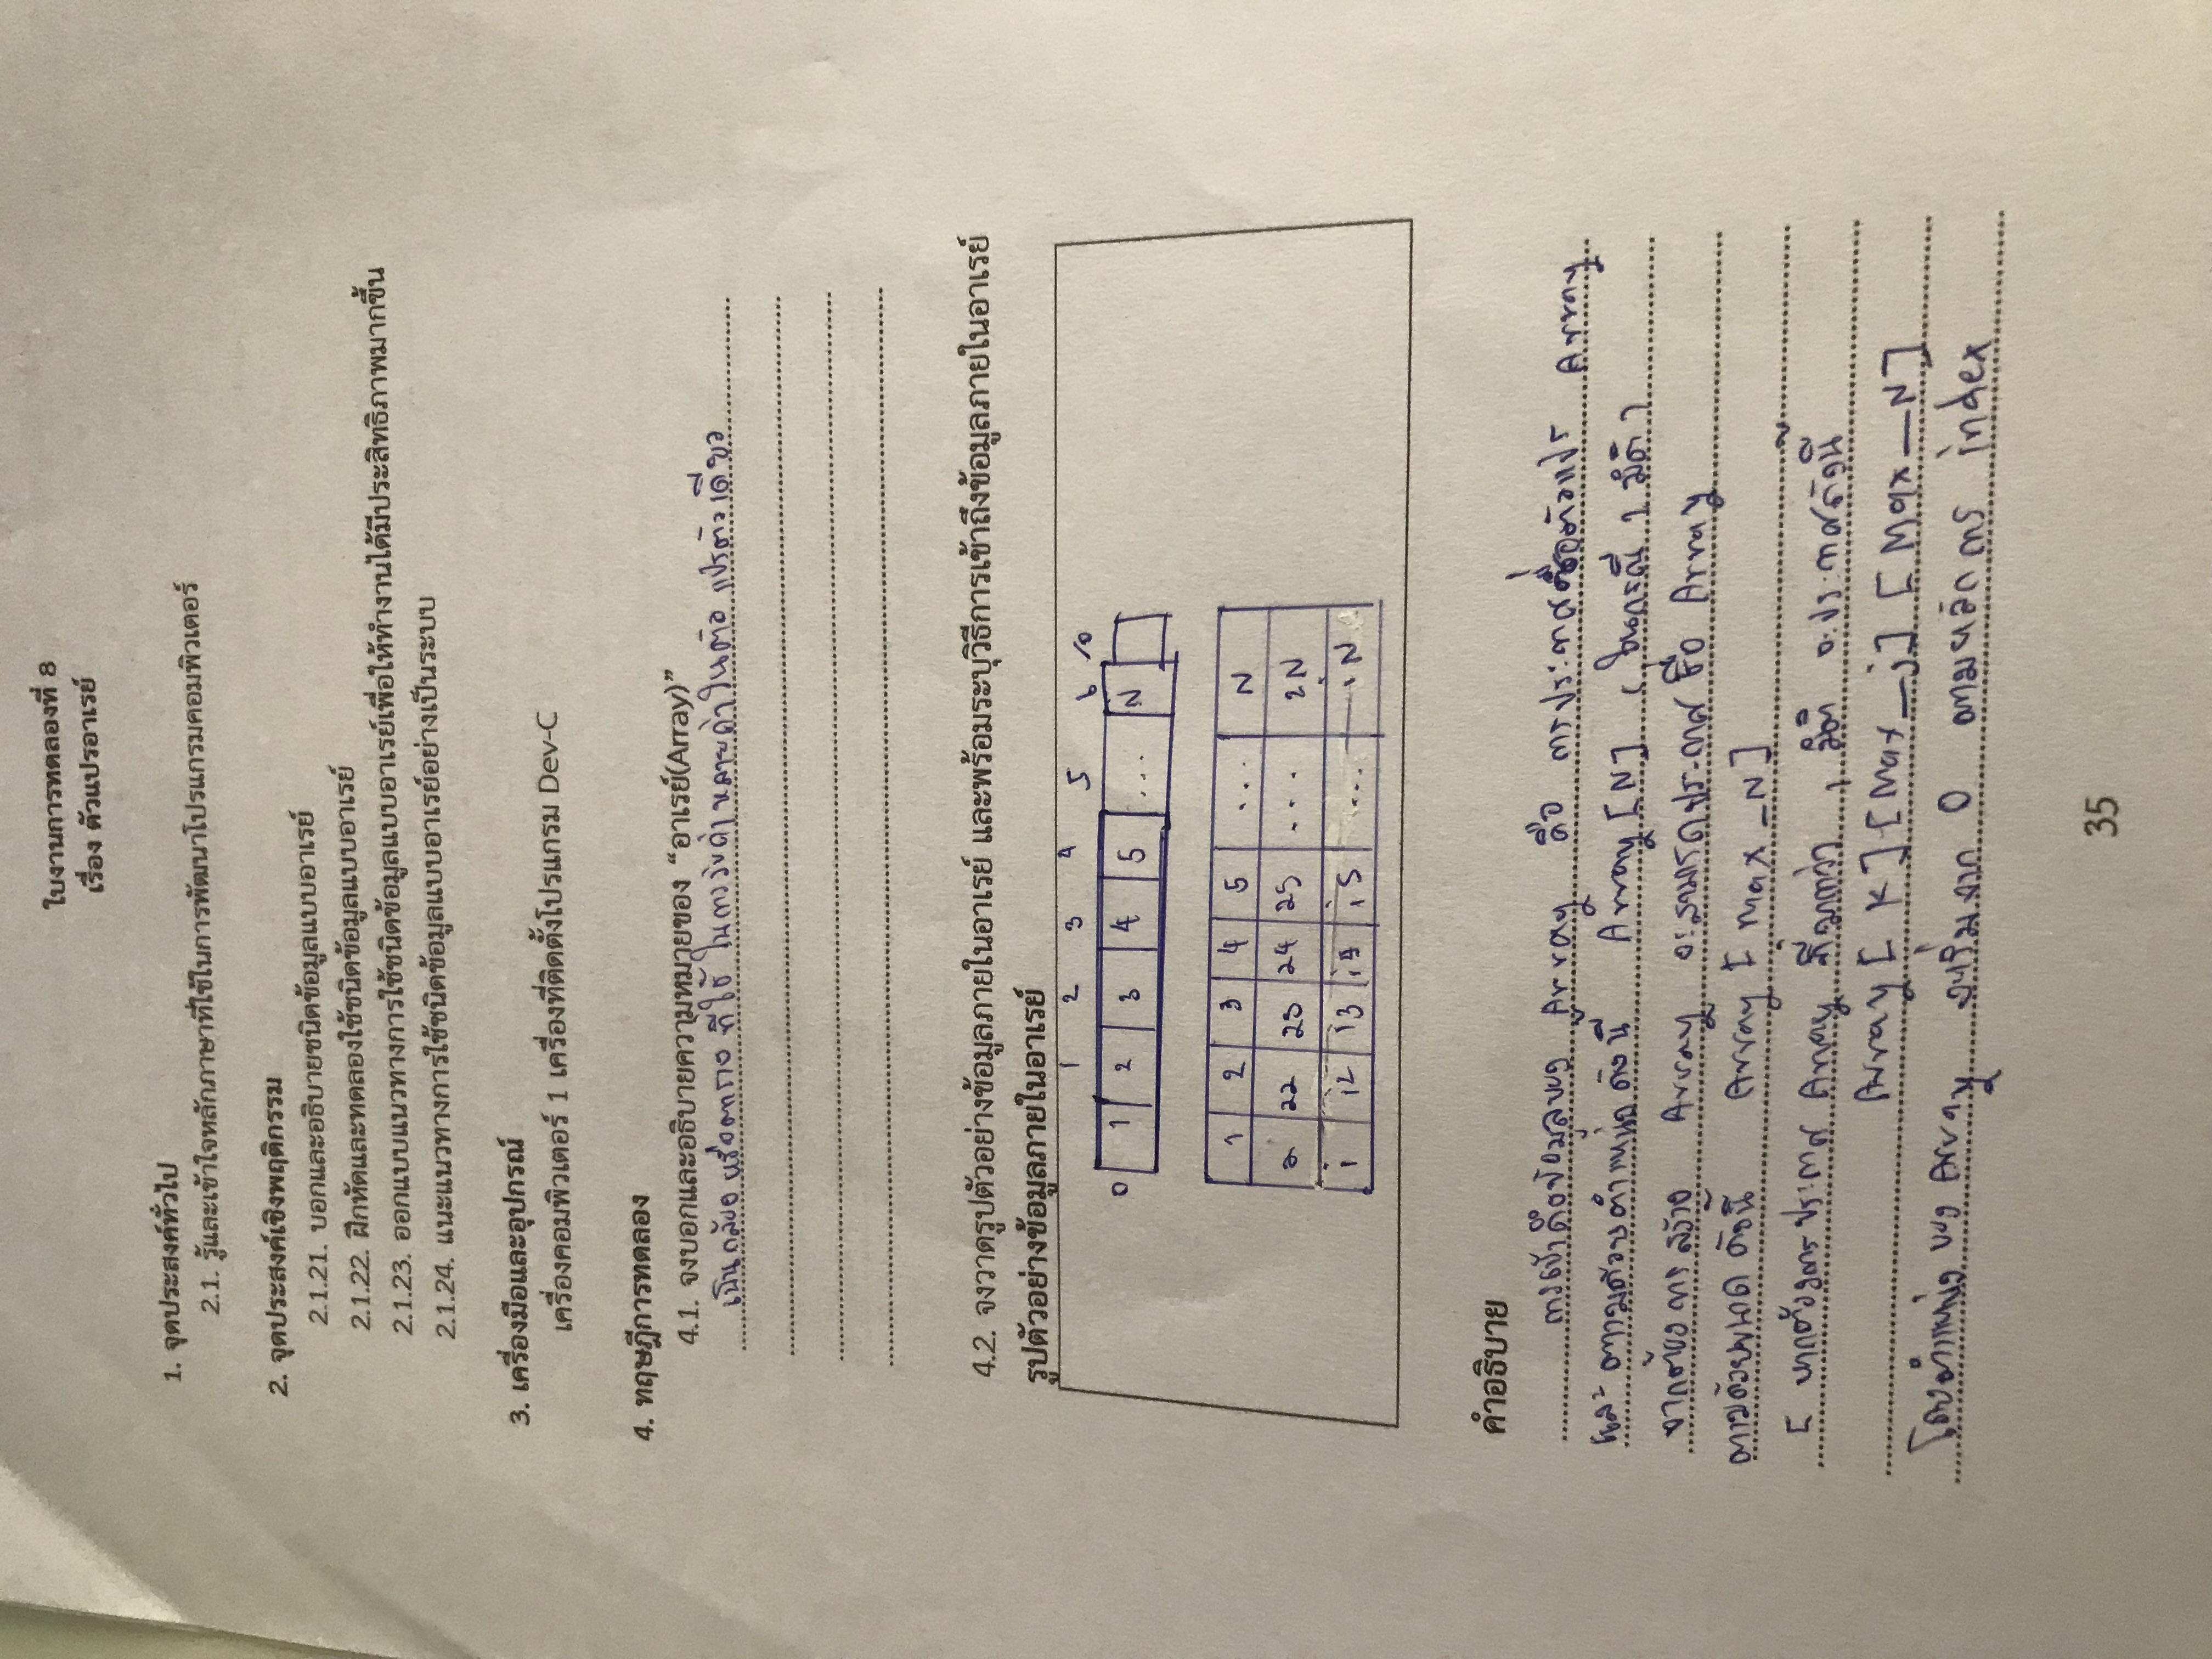 ใบงานการทดลองที่ 8
เรื่อง ตัวแปรอาเรย์
1. จุดประสงค์ทั่วไป
2.1. รู้และเข้าใจหลักภาษาที่ใช้ในการพัฒนาโปรแกรมคอมพิวเตอร์
2. จุดประสงค์เชิงพฤติกรรม
2.1.21. บอกและอธิบายชนิดข้อมูลแบบอาเรย์
2.1.22. ฝึกหัดและทดลองใช้ชนิดข้อมูลแบบอาเรย์
2.1.23. ออกแบบแนวทางการใช้ชนิดข้อมูลแบบอาเรย์เพื่อให้ทำงานได้มีประสิทธิภาพมากขึ้น
2.1.24. แนะแนวทางการใช้ชนิดข้อมูลแบบอาเรย์อย่างเป็นระบบ
3. เครื่องมือและอุปกรณ์
เครื่องคอมพิวเตอร์ 1 เครื่องที่ติดตั้งโปรแกรม Dev-C
4. ทฤษฎีการทดลอง
4.1. จงบอกและอธิบายความหมายของ “อาเรย์(Array)”
เป็นกล่อง หรือตาราง ที่ใช้ ในการรับค่า หลายค่า ในตัว แปรตัวเดียว
4.2. จงวาดรูปตัวอย่างข้อมูลภายในอาเรย์ และพร้อมระบุวิธีการเข้าถึงข้อมูลภายในอาเรย์
รูปตัวอย่างข้อมูลภายในอาเรย์
1 2 3 4 5 6 10
0 1 2 3 4 5 ... N
1 2 3 4 5 ... N
2 22 23 24 25 ... 2N
i i2 i3 i4 i5 ... iN
คำอธิบาย
การเข้าถึงข้อมูลของ Array คือ การประกาศชื่อตัวแปร Array
และ ตามด้วยตำแหน่ง ดังนี้ Array [N] (ในกรณี 1 มิติ)
จากต้องการ สร้าง Array จะสามารถประกาศ ชื่อ Array
ตามด้วยขนาด ดังนี้ Array [ Max_N]
[ หากต้องการ ประกาศ Array ที่มากกว่า 1 มิติ จะประกาศดังนี้
Array [ K ] [Max_j] [ Max_N]
โดยตำแหน่ง ของ Array จะเริ่มจาก 0 ตามหลักการ index
35